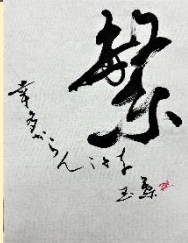 繁
幸多からん
ことを